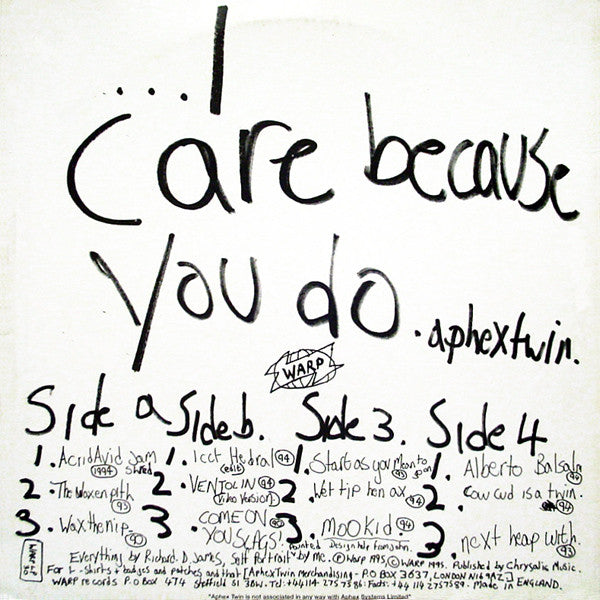 ...I
care because
you do.
.aphextwin.
WARP
Side a
1. AcridAvid Jam
1994 Shred
2. The Waxen pith
94
3. Wax the Nip
90
Side b.
1. Icct Hedral 94
edit
2. VENTOLIN 94
Video Version
3. COME ON
YOU SLAGS!
Side 3.
1. Start as you Mean to
go on
2. Wet tip hen ax 94
3. Mookid. 94
Side 4
1. Alberto Balsalm
94
2. Cow cud is a twin.
94
3. next heap with.
93
Everything by Richard. D. James, Self Portrait painted by Me. Design help from John. ℗ Warp 1995, © WARP 1995. Published by Chrysalis Music.
WARP LP 30
For t-Shirts + badges and patches and that [Aphex Twin Merchandising - P.O BOX 3637, LONDON NW6 9AZ.]
WARP records P.O Box 474 Sheffield S1 3BW. Tel:+44114 2757586. Facts:+44 114 2757589. Made in ENGLAND.
"Aphex Twin is not associated in any way with Aphex Systems Limited"